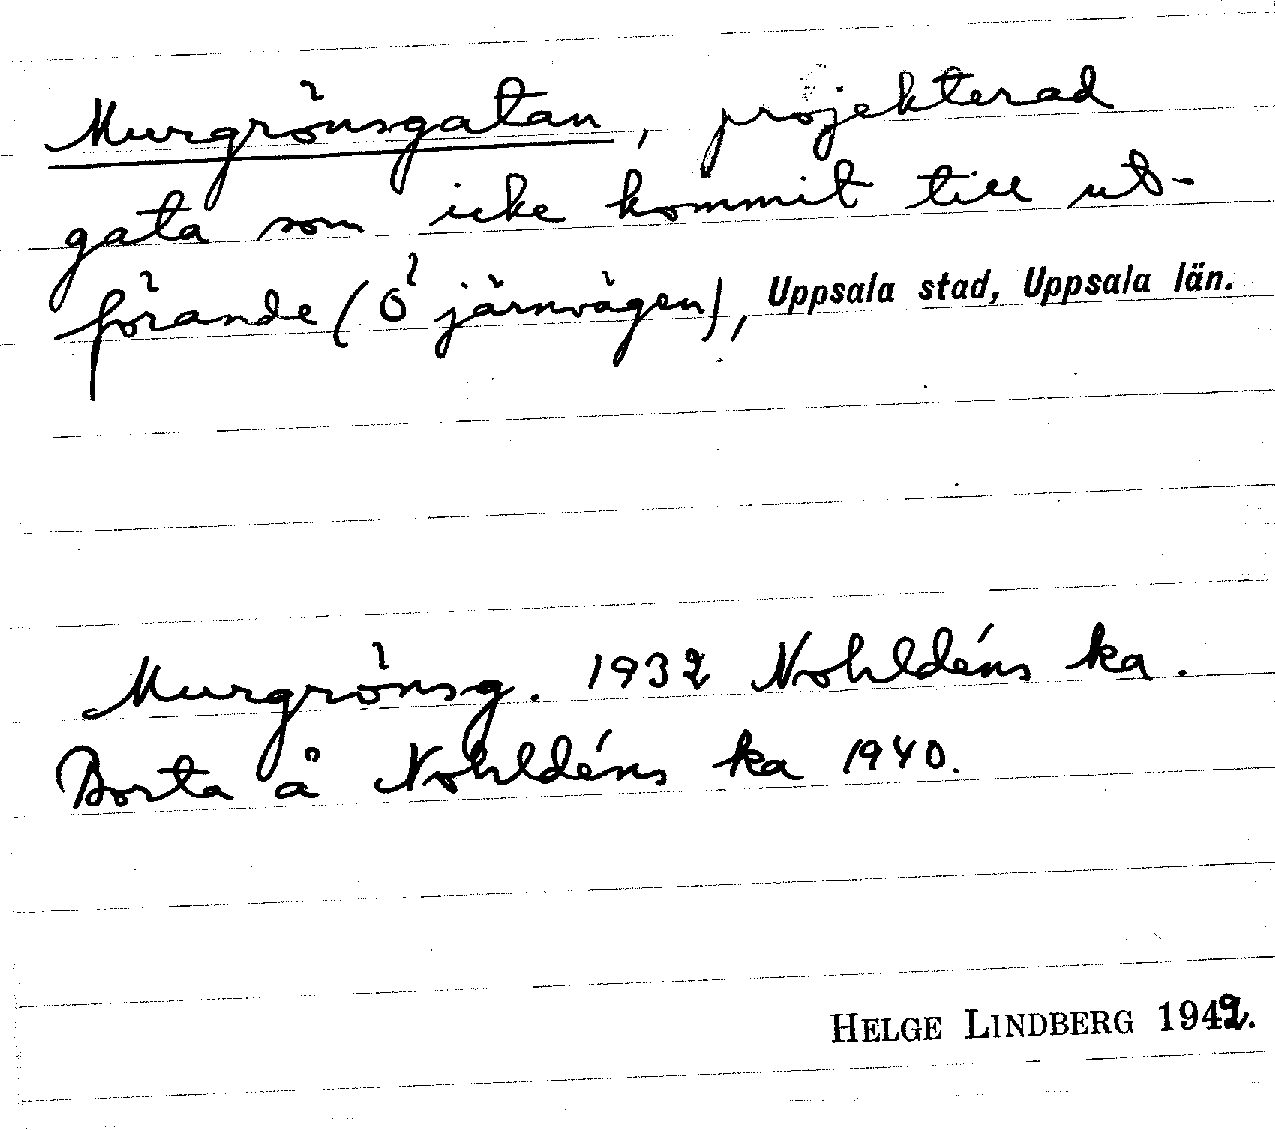 Murgrönsgatan, projekterad
gata som icke kommit till ut-
förande (Ö järnvägen), Uppsala stad, Uppsala län.
Murgrönsg. 1932 Nohldéns ka.
Borta å Nohldéns ka 1940.
HELGE LINDBERG 1942.